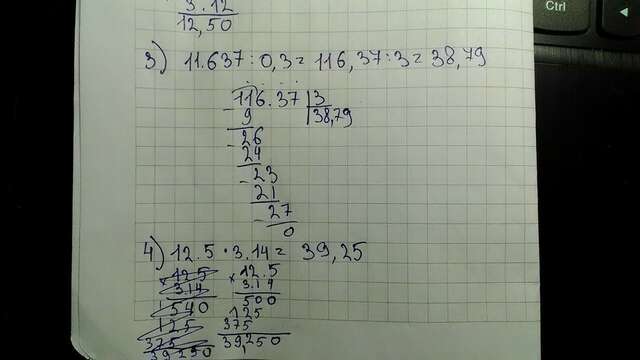 3.12
12,50
3) 11.637 : 0,3 = 116,37 : 3 = 38,79
116.37 | 3
- 9 | 38,79
- 26
24
- 23
21
- 27
0
4) 12.5 · 3.14 = 39,25
× 12.5 × 12.5
3.14 3.14
1540 500
125 125
375 375
39250 39,250
Ctrl